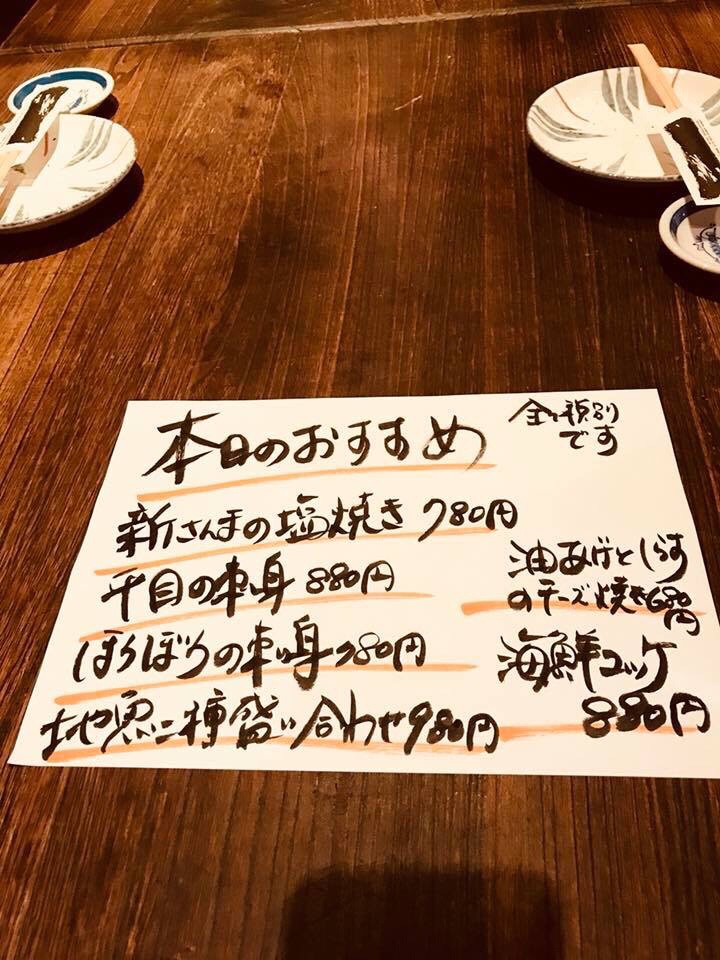 本日のおすすめ
全て税別
です
新さんまの塩焼き 780円
平目の刺身 880円
ほうぼうの刺身 780円
地魚二種盛り合わせ 980円
油あげとしらす
のチーズ焼き 680円
海鮮ユッケ
880円